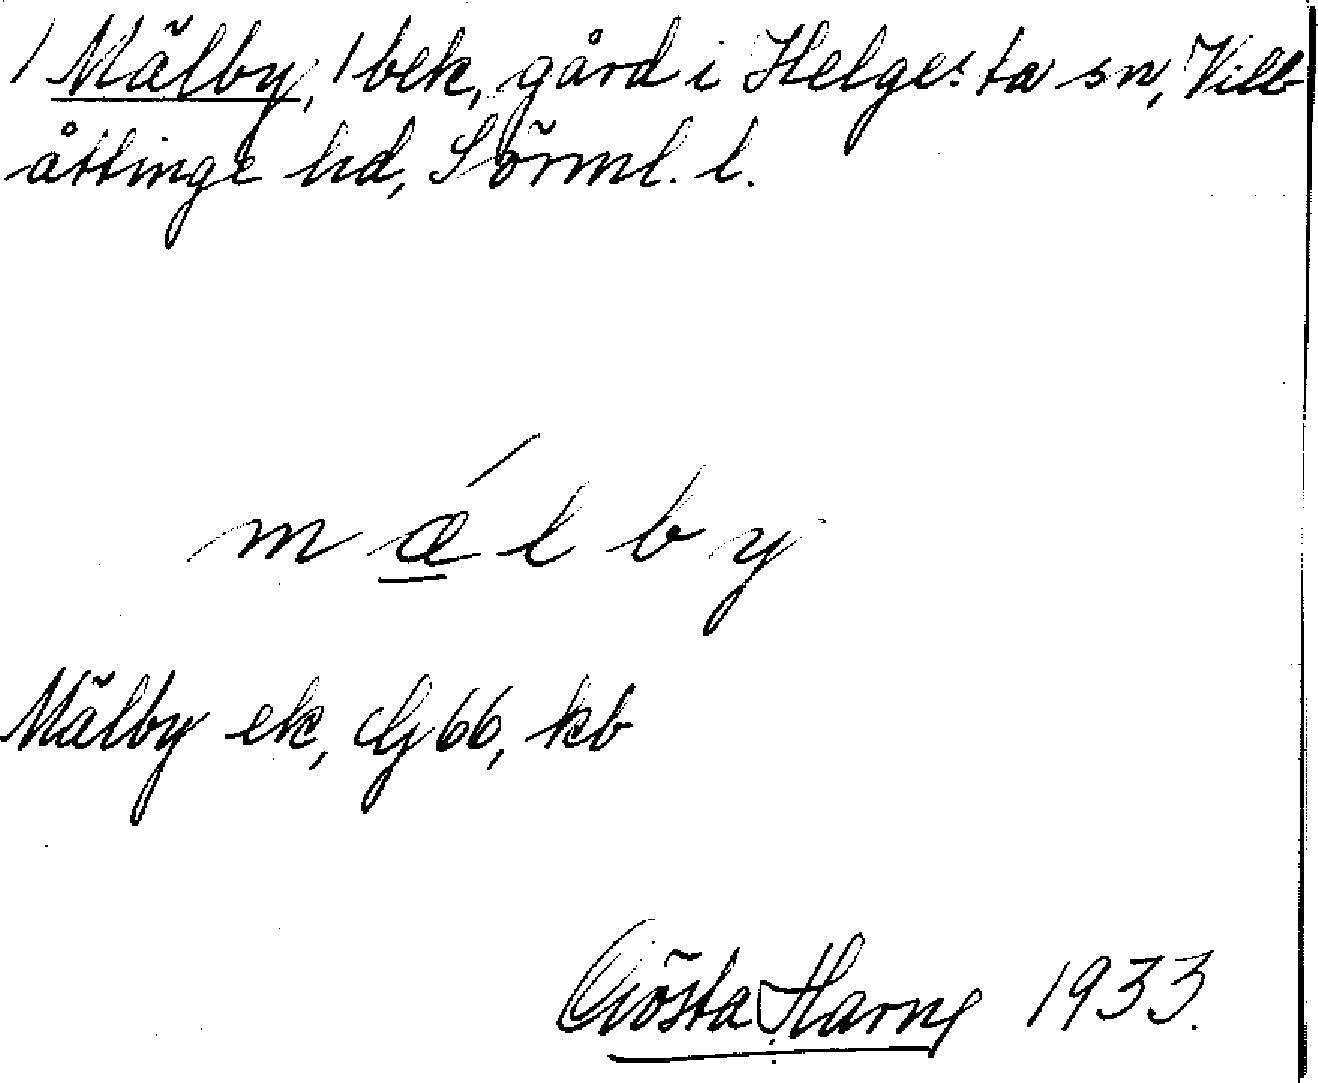 / Mälby, / bek, gård i Helgesta sn, Vill
åttinge hd, Sörml. l.
m æ´ l b y
Mälby ek, G 66, kb
Gösta Harng 1933.